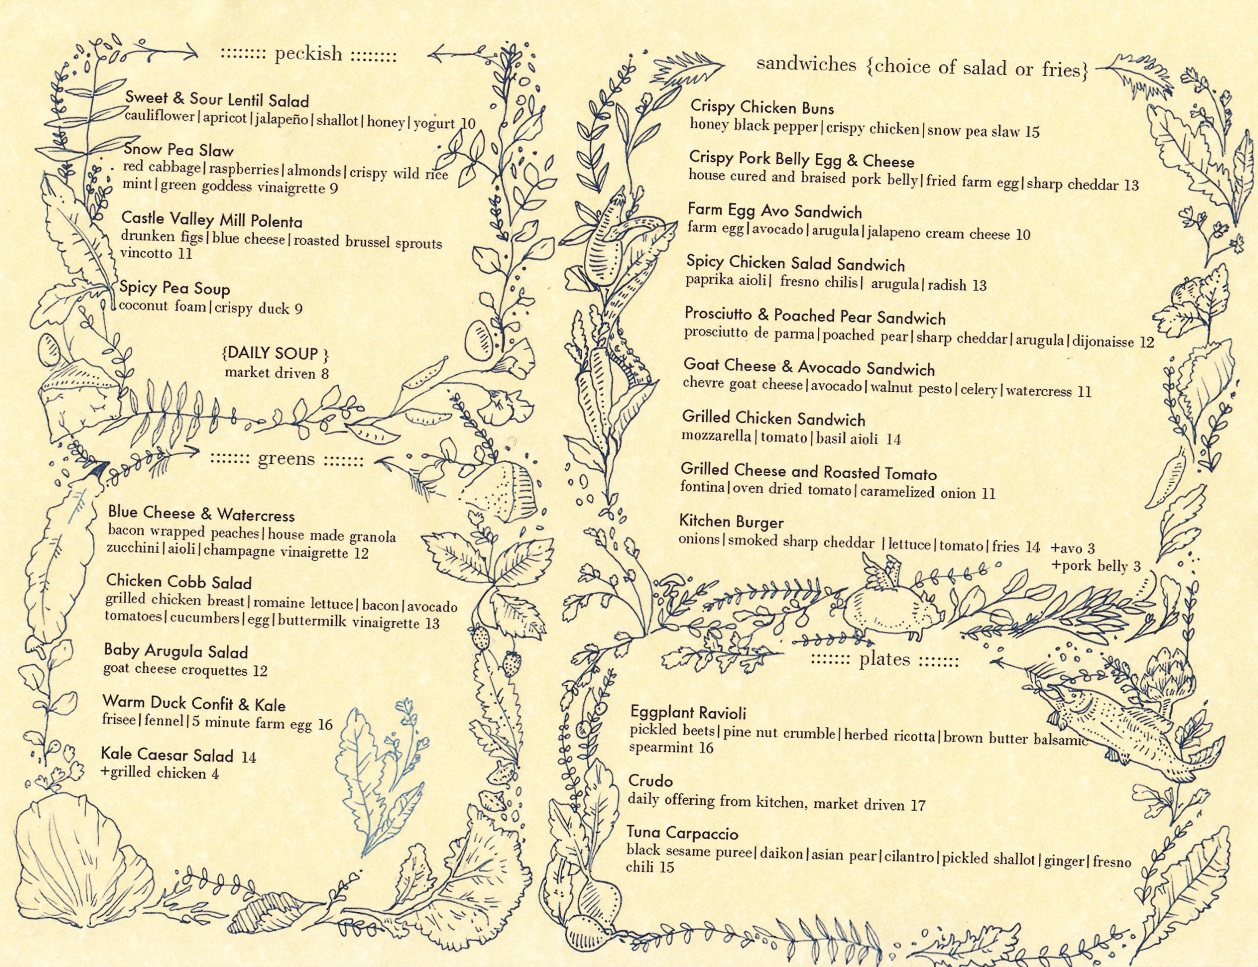 :::::::: peckish ::::::::
Sweet & Sour Lentil Salad
cauliflower|apricot|jalapeño|shallot|honey|yogurt 10
Snow Pea Slaw
red cabbage|raspberries|almonds|crispy wild rice
mint|green goddess vinaigrette 9
Castle Valley Mill Polenta
drunken figs|blue cheese|roasted brussel sprouts
vincotto 11
Spicy Pea Soup
coconut foam|crispy duck 9
{DAILY SOUP }
market driven 8
::::::: greens :::::::
Blue Cheese & Watercress
bacon wrapped peaches|house made granola
zucchini|aioli|champagne vinaigrette 12
Chicken Cobb Salad
grilled chicken breast|romaine lettuce|bacon|avocado
tomatoes|cucumbers|egg|buttermilk vinaigrette 13
Baby Arugula Salad
goat cheese croquettes 12
Warm Duck Confit & Kale
frisee|fennel|5 minute farm egg 16
Kale Caesar Salad 14
+grilled chicken 4
sandwiches {choice of salad or fries}
Crispy Chicken Buns
honey black pepper|crispy chicken|snow pea slaw 15
Crispy Pork Belly Egg & Cheese
house cured and braised pork belly|fried farm egg|sharp cheddar 13
Farm Egg Avo Sandwich
farm egg|avocado|arugula|jalapeno cream cheese 10
Spicy Chicken Salad Sandwich
paprika aioli| fresno chilis| arugula|radish 13
Prosciutto & Poached Pear Sandwich
prosciutto de parma|poached pear|sharp cheddar|arugula|dijonaisse 12
Goat Cheese & Avocado Sandwich
chevre goat cheese|avocado|walnut pesto|celery|watercress 11
Grilled Chicken Sandwich
mozzarella|tomato|basil aioli 14
Grilled Cheese and Roasted Tomato
fontina|oven dried tomato|caramelized onion 11
Kitchen Burger
onions|smoked sharp cheddar |lettuce|tomato|fries 14 +avo 3
+pork belly 3
::::::: plates :::::::
Eggplant Ravioli
pickled beets|pine nut crumble|herbed ricotta|brown butter balsamic
spearmint 16
Crudo
daily offering from kitchen, market driven 17
Tuna Carpaccio
black sesame puree|daikon|asian pear|cilantro|pickled shallot|ginger|fresno
chili 15